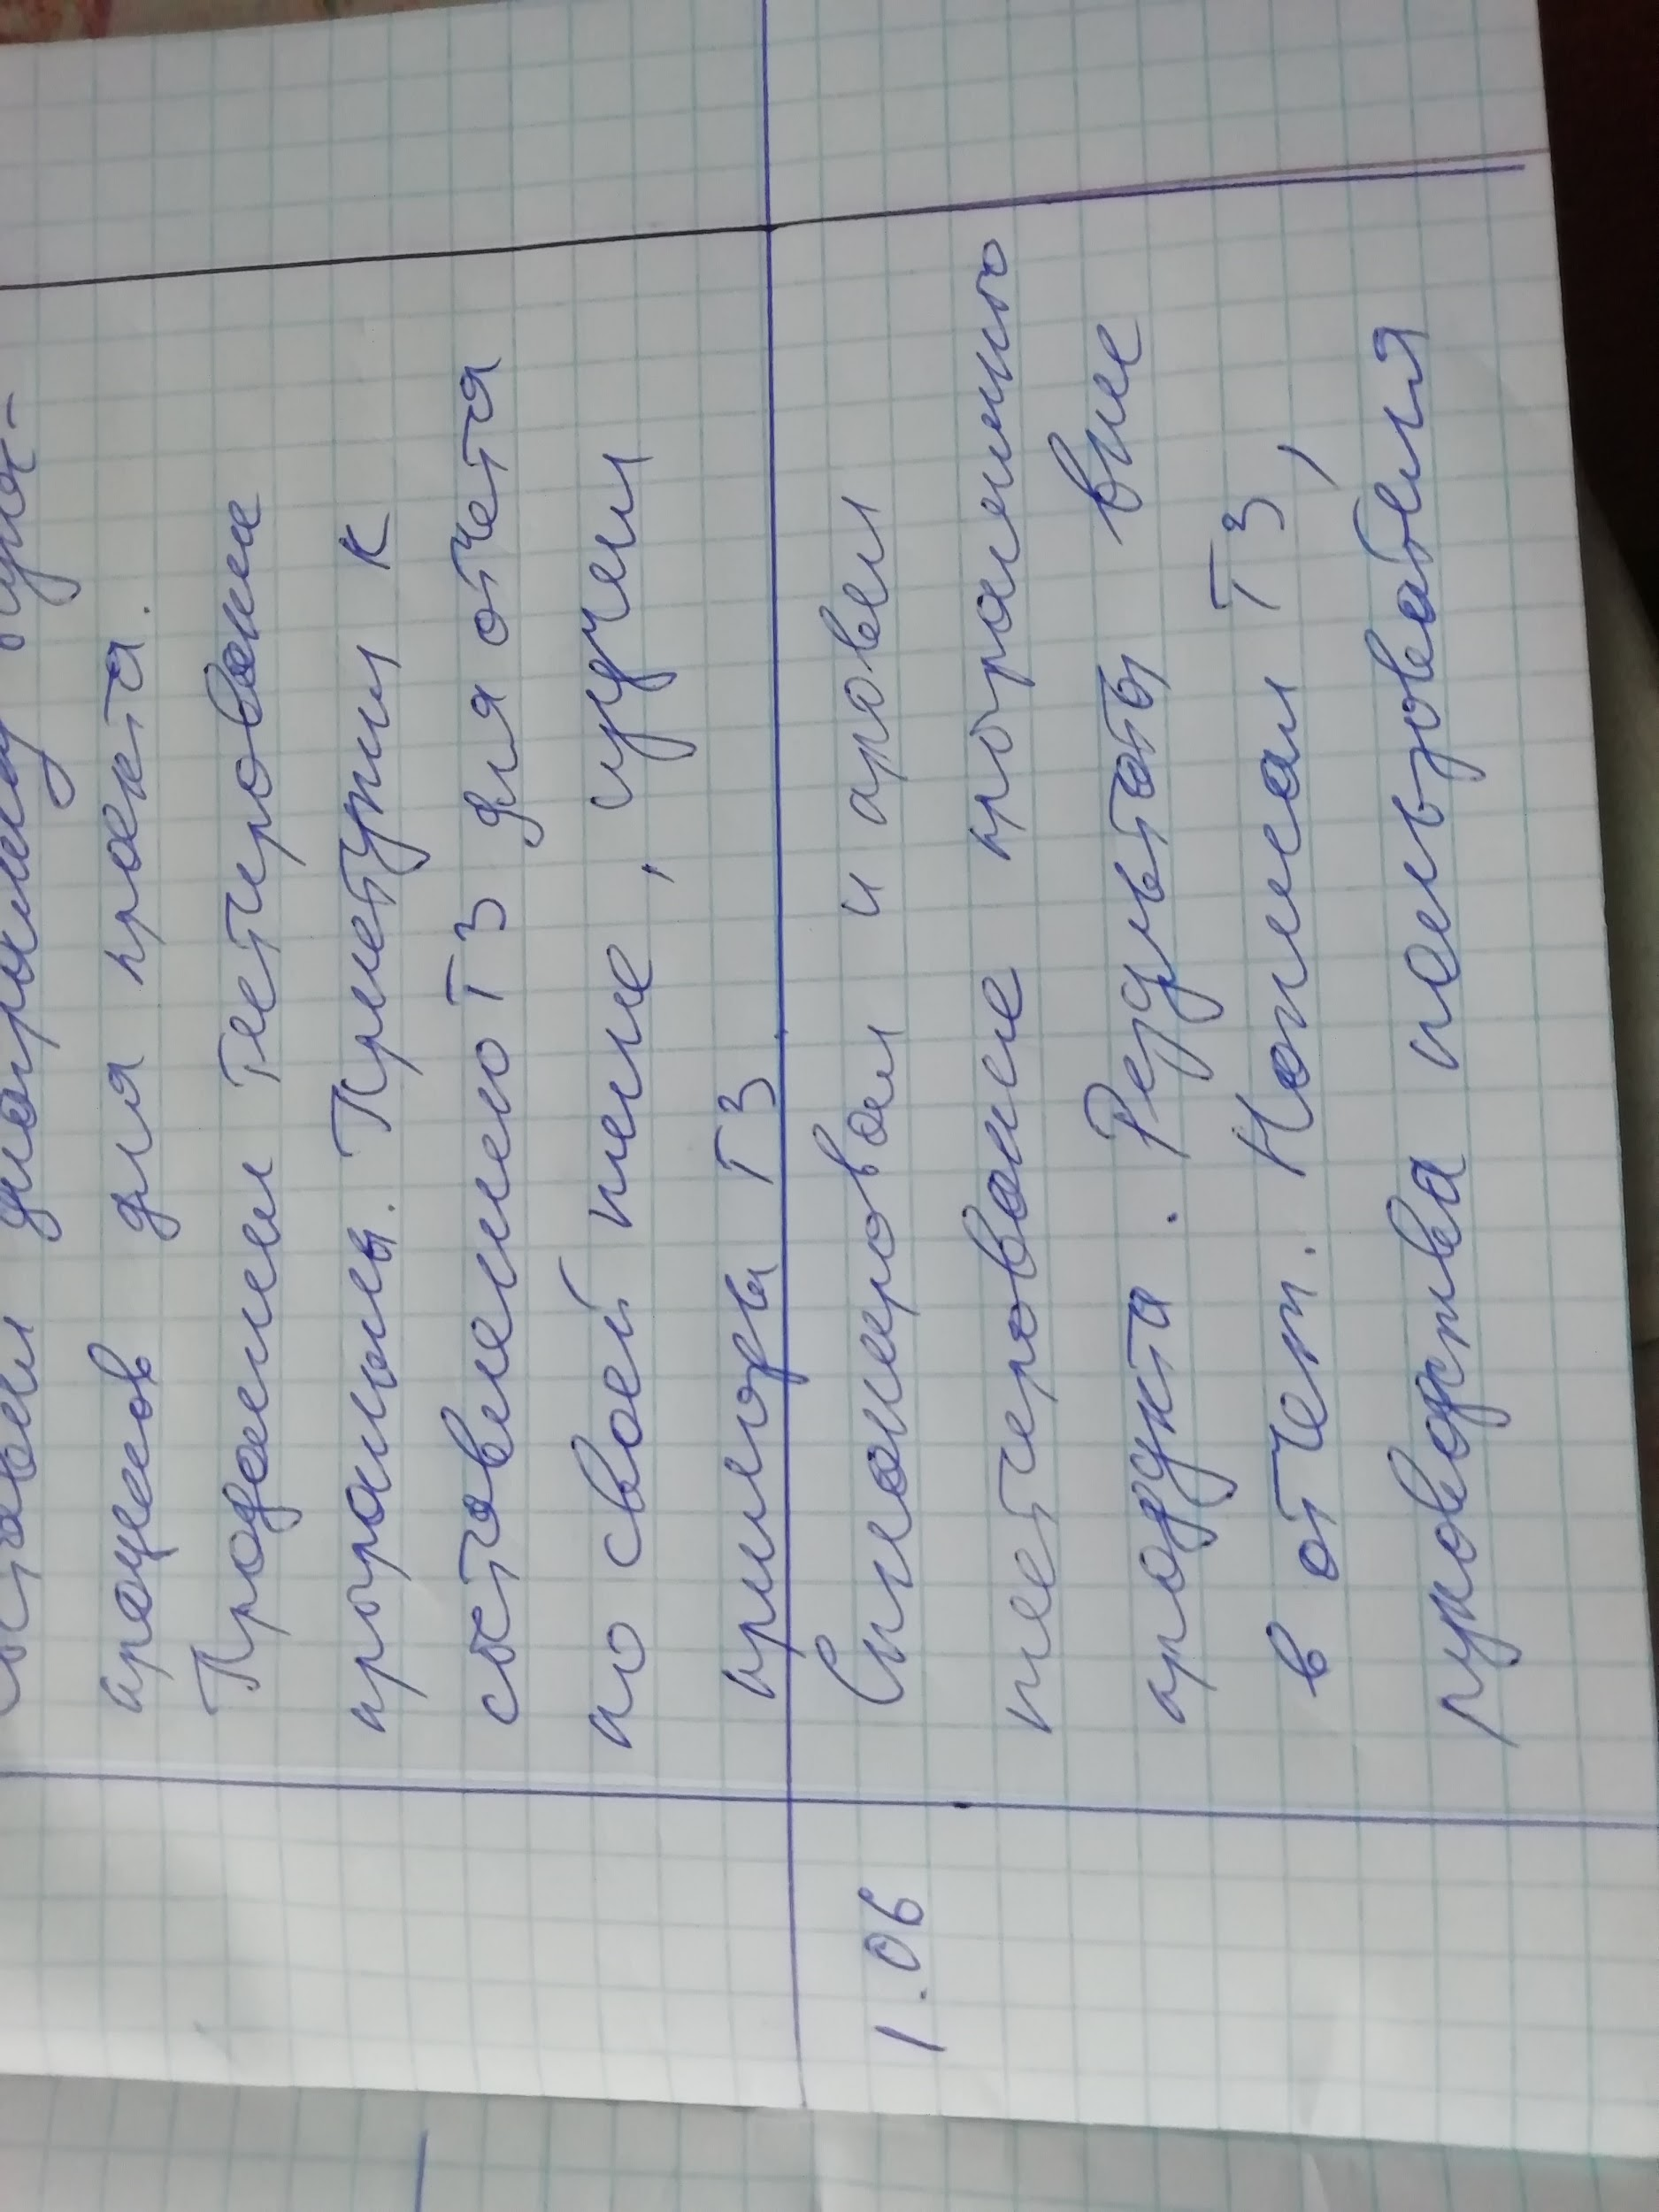 составил диаграмму
процессов для проекта.
Проделал тестирование
программы. Приступил к
составлению ТЗ для отчета
по своей теме, изучил
примеры ТЗ
1.06
Спланировал и провел
тестирование програмного
продукта. Результаты внес
в отчет. Написал ТЗ,
руководства пользователя